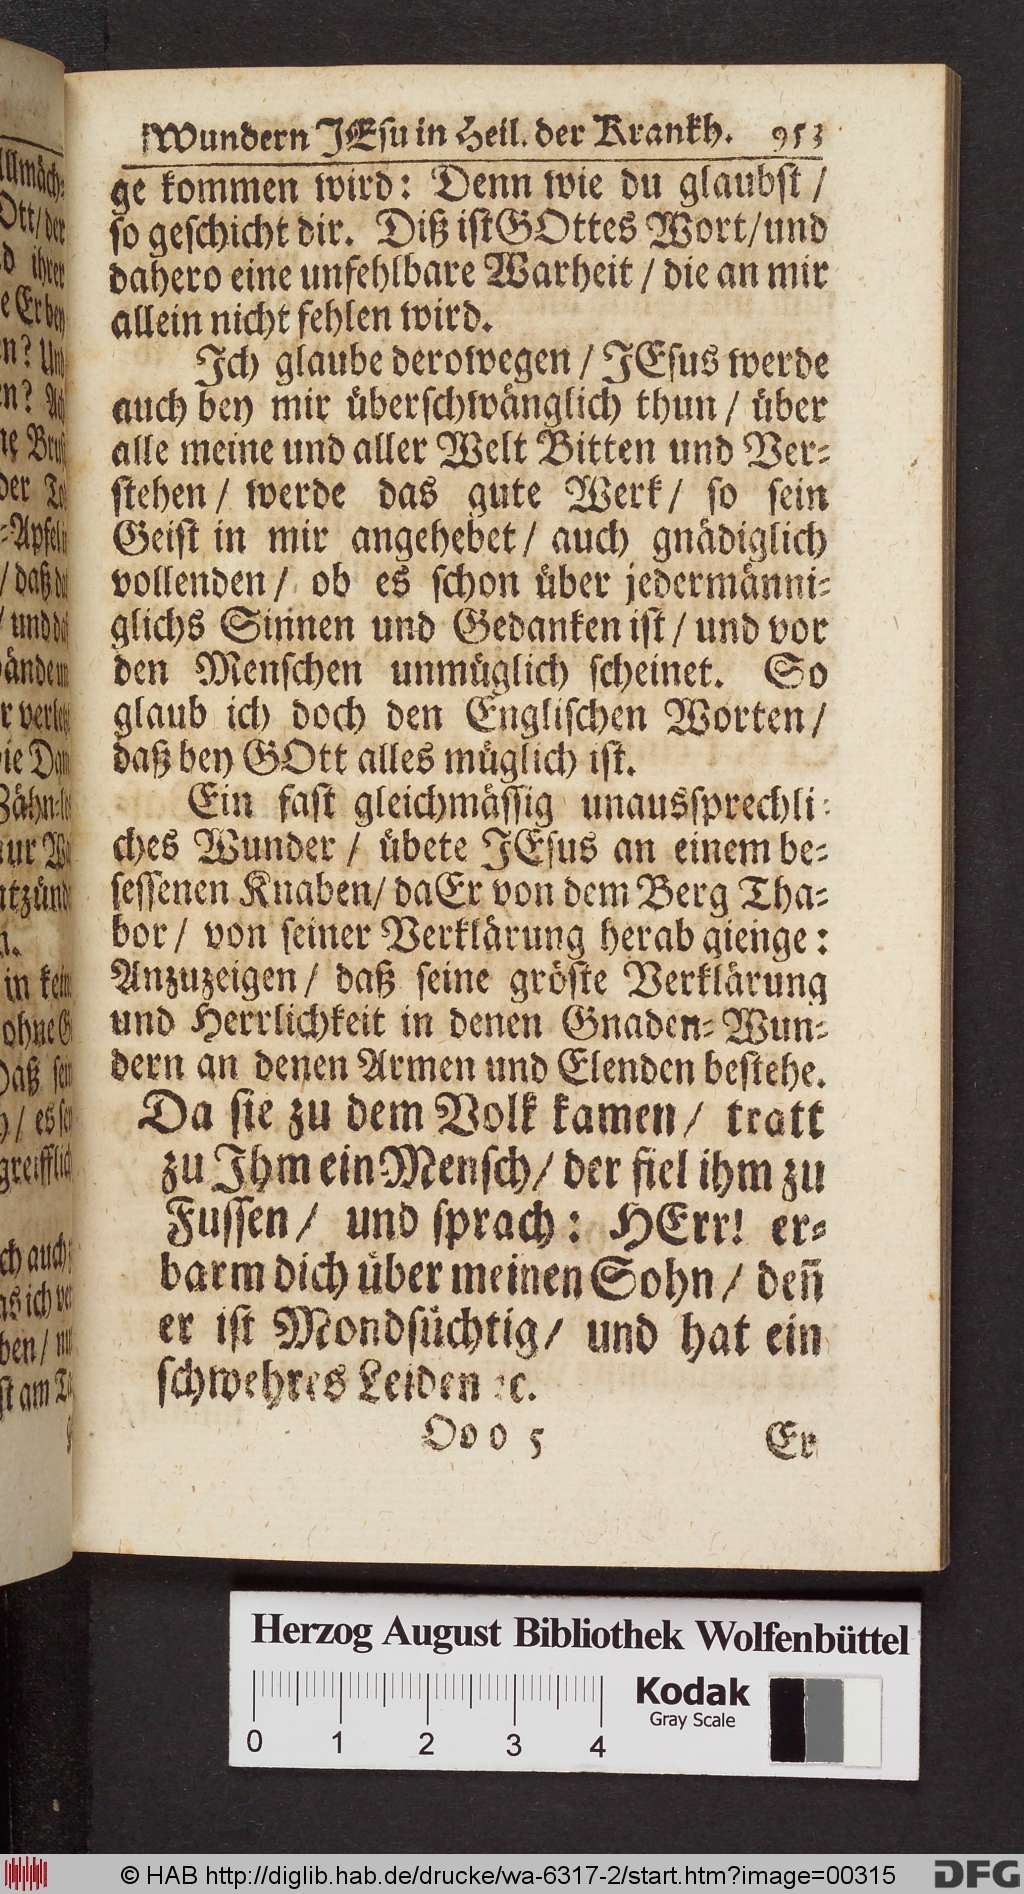 Wundern JEsu in Heil. der Krankh. 953
ge kommen wird: Denn wie du glaubst /
so geschicht dir. Diß ist GOttes Wort/und
dahero eine unfehlbare Warheit / die an mir
allein nicht fehlen wird.
Ich glaube derowegen / JEsus werde
auch bey mir überschwänglich thun / über
alle meine und aller Welt Bitten und Ver-
stehen / werde das gute Werk / so sein
Geist in mir angehebet / auch gnädiglich
vollenden / ob es schon über jedermänni-
glichs Sinnen und Gedanken ist / und vor
den Menschen unmüglich scheinet. So
glaub ich doch den Englischen Worten /
daß bey GOtt alles müglich ist.
Ein fast gleichmässig unaussprechli-
ches Wunder / übete JEsus an einem be-
sessenen Knaben/ da Er von dem Berg Tha-
bor / von seiner Verklärung herab gienge:
Anzuzeigen / daß seine gröste Verklärung
und Herrlichkeit in denen Gnaden-Wun-
dern an denen Armen und Elenden bestehe.
Da sie zu dem Volk kamen / tratt
zu Ihm ein Mensch / der fiel ihm zu
Fussen / und sprach: HErr! er-
barm dich über meinen Sohn / deñ
er ist Mondsüchtig / und hat ein
schwehres Leiden ꝛc.
Ooo 5 Er
Allmäch-
Ott/ der
ihrer
e Er bey
n? Und
der
-Apfel
/ daß
/ und
ie
Zähn-
ur
n.
in
ohne
Daß
) / es
ch auch
as ich
ben /
st am
Herzog August Bibliothek Wolfenbüttel
0 1 2 3 4
Kodak
Gray Scale
© HAB http://diglib.hab.de/drucke/wa-6317-2/start.htm?image=00315
DFG